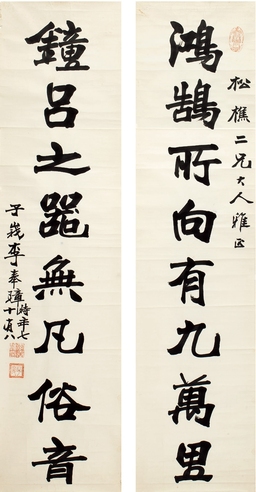 松樵二兄大人雅正
鴻鵠所向有九萬里
鐘呂之器無凡俗音
子義李奉璋時年七十有八